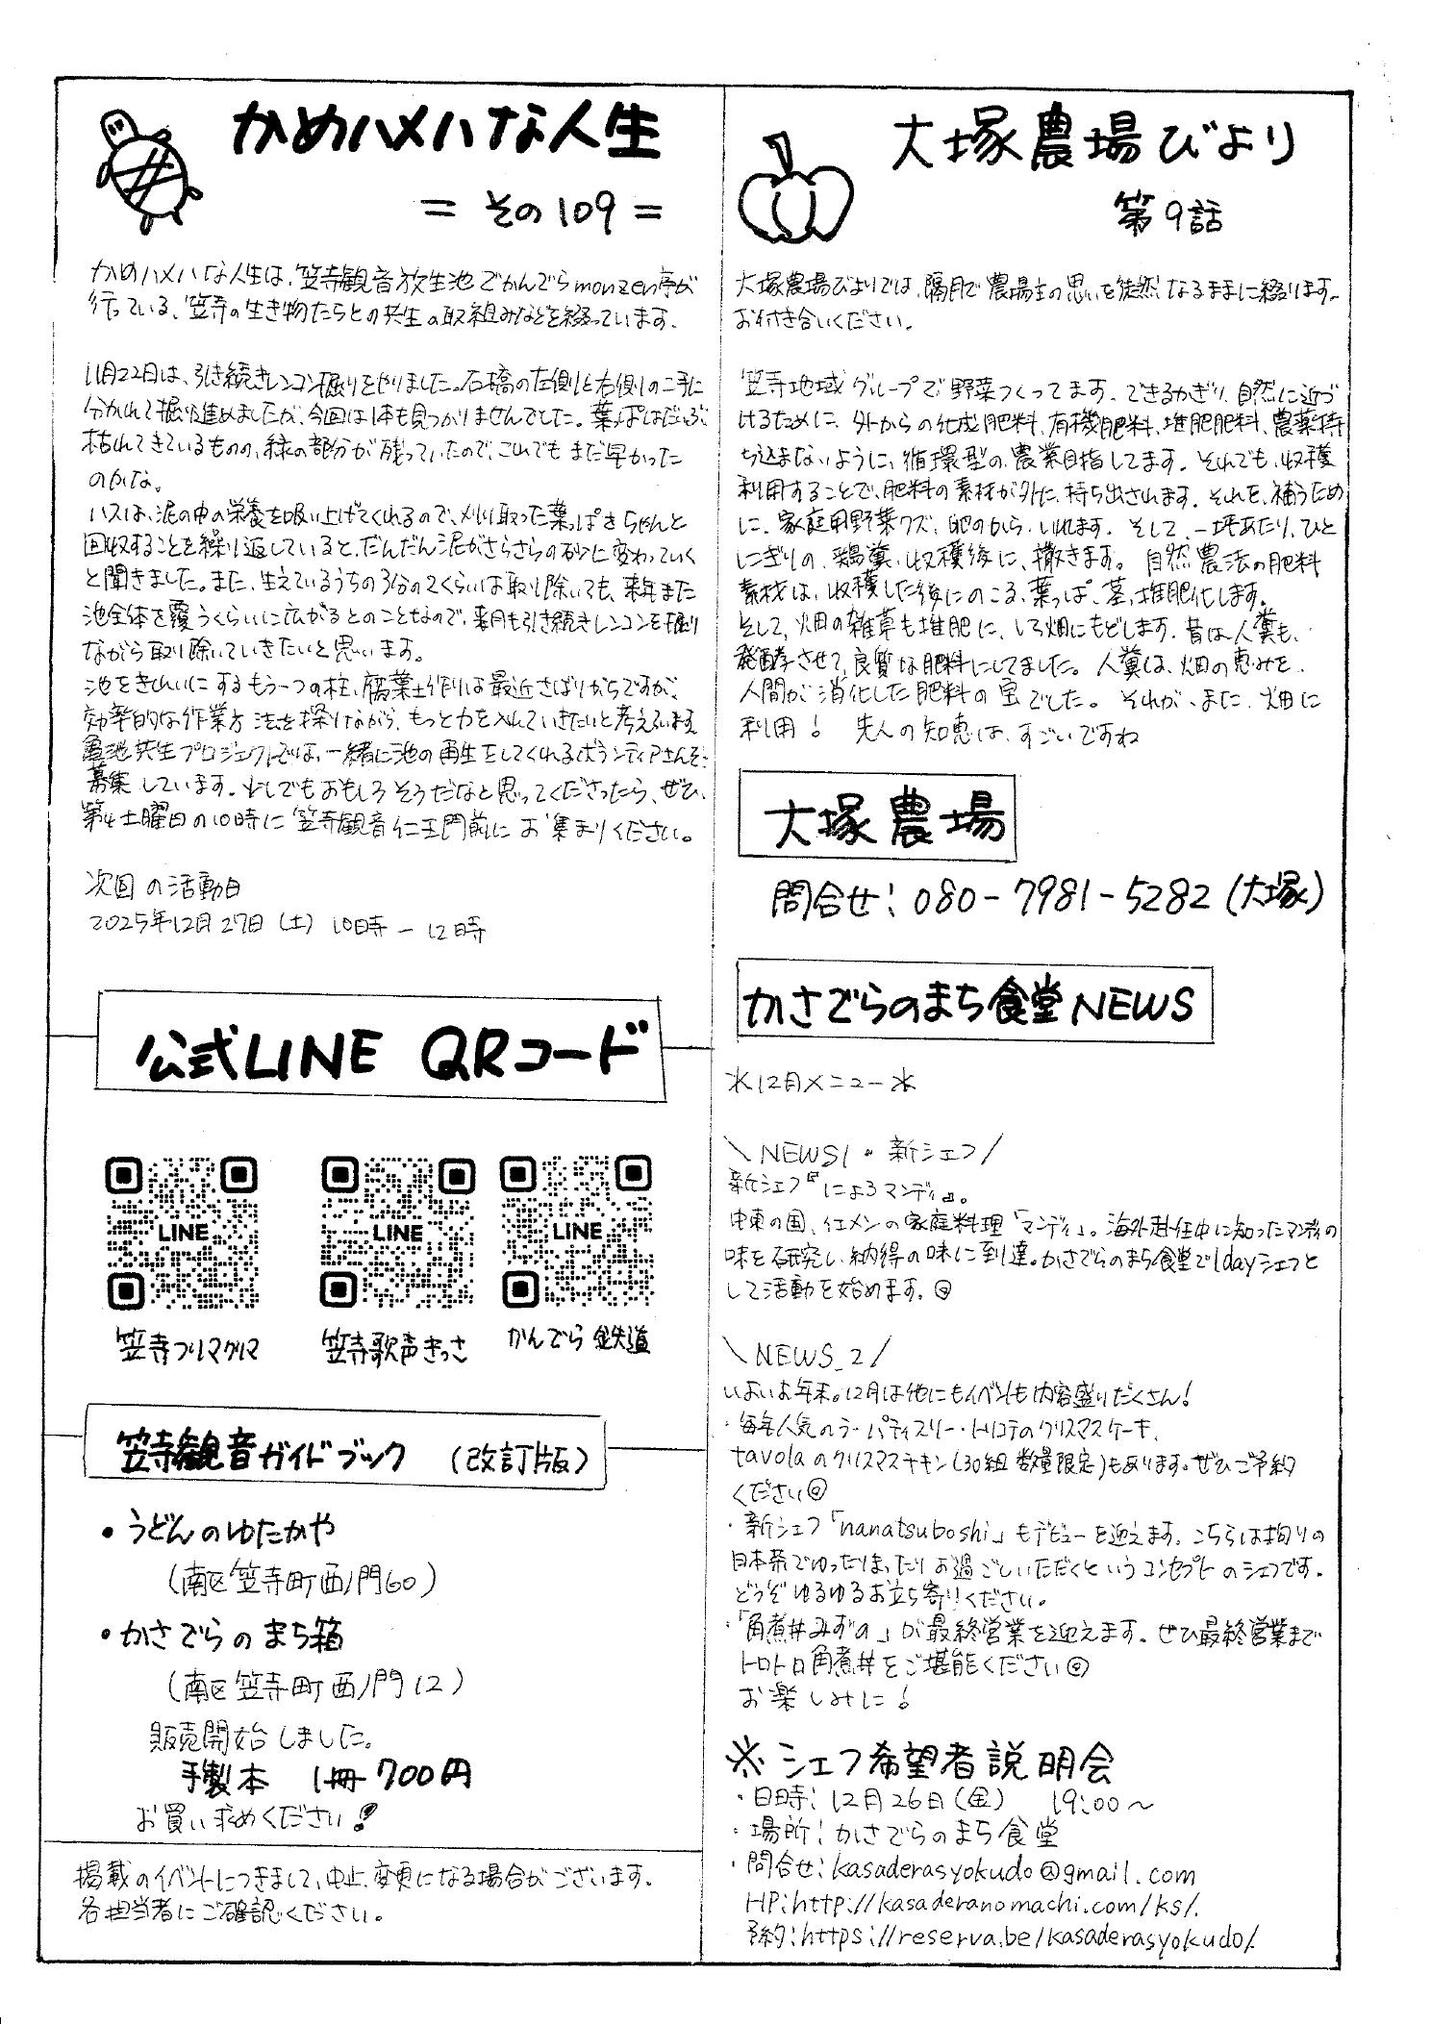 かめハメハな人生
= その109 =
かめハメハな人生は、笠寺観音放生池でかんでらmonzen亭が
行っている、笠寺の生き物たちとの共生の取組みなどを綴っています。
11月22日は、引き続きレンコン掘りをやりました。石橋の左側と右側の二手に
分かれて掘り進めましたが、今回は1本も見つかりませんでした。葉っぱはだいぶ
枯れてきているものの、緑の部分が残っていたので、これでもまだ早かった
のかな。
ハスは、泥の中の栄養を吸い上げてくれるので、刈り取った葉っぱをちゃんと
回収することを繰り返していると、だんだん泥がさらさらの砂に変わっていく
と聞きました。また、生えているうちの3分の2くらいは取り除いても、来年また
池全体を覆うくらいに広がるとのことなので、来月も引き続きレンコンを掘り
ながら取り除いていきたいと思います。
池をきれいにするもう一つの柱、腐葉土作りは最近さぼりがちですが、
効率的な作業方法を探りながら、もっと力を入れていきたいと考えています。
亀池共生プロジェクトでは、一緒に池の再生をしてくれるボランティアさんを
募集しています。少しでもおもしろそうだなと思ってくださったら、ぜひ、
第4土曜日の10時に笠寺観音仁王門前にお集まりください。
次回の活動日
2025年12月27日(土) 10時－12時
公式LINE QRコード
LINE LINE LINE
笠寺フリマクリマ 笠寺歌声きっさ かんでら鉄道
笠寺観音ガイドブック (改訂版)
・うどんのゆたかや
(南区笠寺町西ノ門60)
・かさでらのまち箱
(南区笠寺町西ノ門12)
販売開始しました。
手製本 1冊700円
お買い求めください!
掲載のイベントにつきまして、中止、変更になる場合がございます。
各担当者にご確認ください。
大塚農場びより
第9話
大塚農場びよりでは、隔月で農場主の思いを徒然なるままに綴ります。
お付き合いください。
笠寺地域グループで野菜つくってます。できるかぎり、自然に近づ
けるために、外からの化成肥料、有機肥料、堆肥肥料、農薬持
ち込まないように、循環型の、農業目指してます。それでも、収穫
利用することで、肥料の素材が外に、持ち出されます。それを、補うため
に、家庭用野菜クズ、卵のから、いれます。そして、一坪あたり、ひと
にぎりの、鶏糞、収穫後に、撒きます。自然農法の肥料
素材は、収穫した後にのこる、葉っぱ、茎、堆肥化します。
そして、畑の雑草も堆肥に、しろ畑にもどします。昔は人糞も、
発酵させて、良質な肥料にしてました。人糞は、畑の恵みを、
人間が消化した肥料の宝でした。それが、また、畑に
利用! 先人の知恵は、すごいですね
大塚農場
問合せ: 080-7981-5282 (大塚)
かさでらのまち食堂NEWS
*12月メニュー*
\NEWS1・新シェフ/
新シェフ『にょろマンディ』。
中東の国、イエメンの家庭料理「マンディ」。海外赴任中に知ったマンディの
味を研究し、納得の味に到達。かさでらのまち食堂で1dayシェフと
して活動を始めます。
\NEWS_2/
いよいよ年末。12月は他にもイベントも内容盛りだくさん!
・毎年人気のラ・パティスリー・トリコテのクリスマスケーキ、
tavolaのクリスマスチキン(30組数量限定)もあります。ぜひご予約
ください
・新シェフ「nanatsuboshi」もデビューを迎えます。こちらは拘りの
日本茶でゆったりまったりお過ごしいただくというコンセプトのシェフです。
どうぞゆるゆるお立ち寄りください。
・「角煮丼みずの」が最終営業を迎えます。ぜひ最終営業まで
トロトロ角煮丼をご堪能ください
お楽しみに!
※シェフ希望者説明会
・日時: 12月26日(金) 19:00~
・場所: かさでらのまち食堂
・問合せ: kasaderasyokudo@gmail.com
HP: http://kasaderanomachi.com/ks/.
予約: https://reserva.be/kasaderasyokudo/.